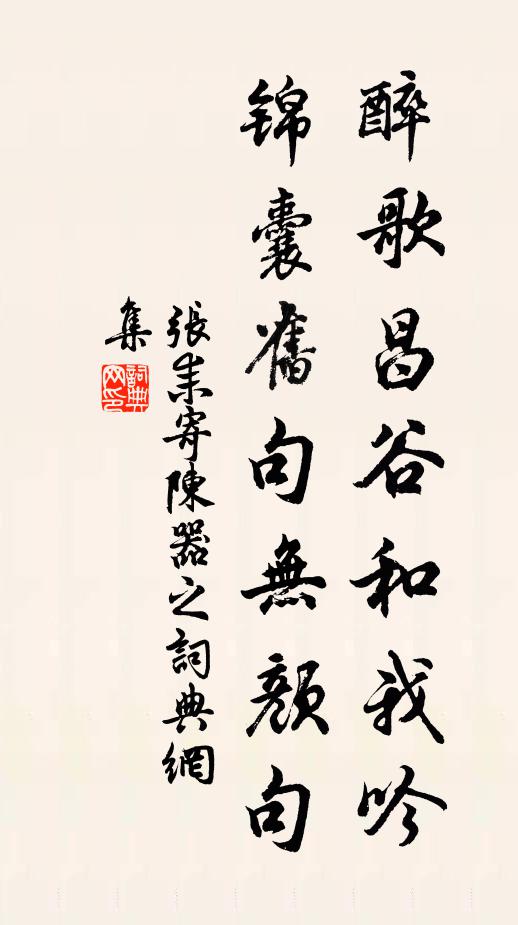 醉歌昌谷和我吟
錦囊舊句無顏句
張耒寄陳器之詞典網
集
詞典
网印